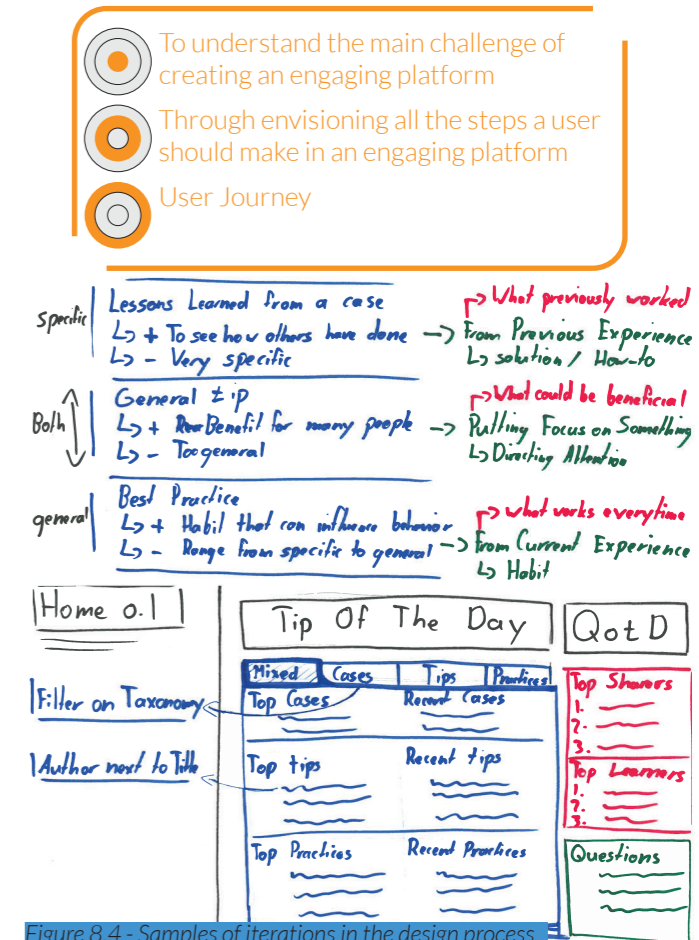 To understand the main challenge of
creating an engaging platform
Through envisioning all the steps a user
should make in an engaging platform
User Journey
Specific
Lessons Learned from a case
↳ + To see how others have done →
↳ - Very specific
What previously worked
From Previous Experience
↳ solution / How-to
Both
General tip
↳ + Benefit for many people →
↳ - Too general
What could be beneficial
Putting Focus on Something
↳ Directing Attention
general
Best Practice
↳ + Habit that can influence behavior
↳ - Range from specific to general →
what works everytime
From Current Experience
↳ Habit
Home 0.1
Filter on Taxonomy
Author next to Title
Tip Of The Day
Mixed Cases Tips Practices
Top Cases Recent Cases
Top tips Recent tips
Top Practices Recent Practices
QotD
Top Sharers
1.
2.
3.
Top Learners
1.
2.
3.
Questions
Figure 8.4 - Samples of iterations in the design process